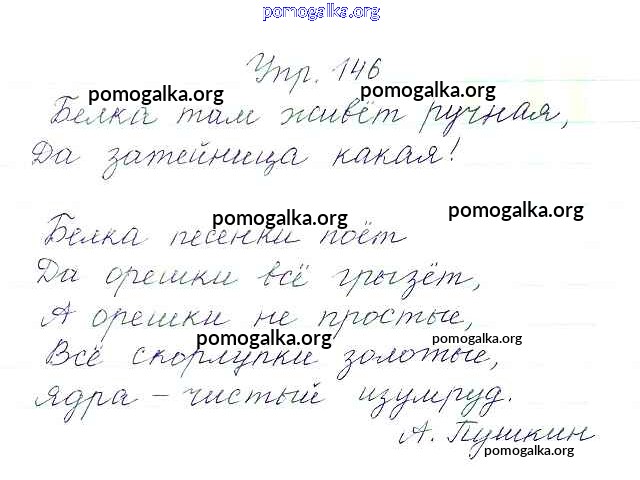 pomogalka.org
Упр. 146
pomogalka.org pomogalka.org
Белка там живёт ручная,
Да затейница какая!
pomogalka.org pomogalka.org
Белка песенки поёт
Да орешки всё грызёт,
А орешки не простые,
pomogalka.org pomogalka.org
Всё скорлупки золотые,
Ядра – чистый изумруд.
А. Пушкин
pomogalka.org